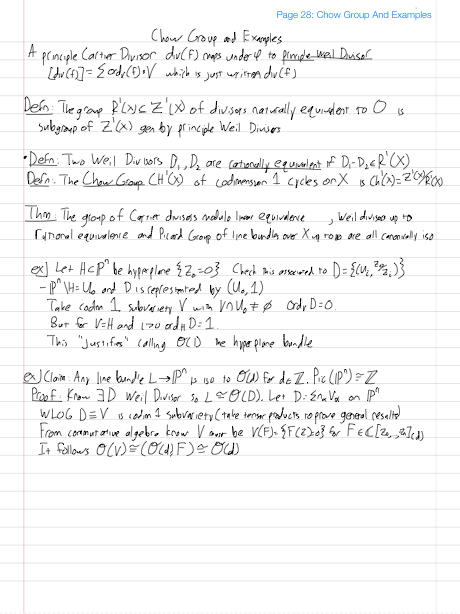 Page 28: Chow Group And Examples
Chow Group and Examples
A principle Cartier Divisor div(f) maps under φ to principle Weil Divisor
[div(f)] = Σ ord_V(f)•V which is just written div(f)
Defn: The group R¹(X) ⊆ Z¹(X) of divisors naturally equivalent to O is
subgroup of Z¹(X) gen by principle Weil Divisors
• Defn: Two Weil Divisors D₁, D₂ are rationally equivalent if D₁-D₂ ∈ R¹(X)
Defn: The Chow Group CH¹(X) of codimension 1 cycles on X is Ch¹(X) = Z¹(X)/R¹(X)
Thm: The group of Cartier divisors modulo linear equivalence , Weil divisors up to
rational equivalence and Picard Group of line bundles over X up to iso are all canonically iso
ex] Let H⊂Pⁿ be hyperplane {Z₀=0} Check this associated to D = {(U_i, Z₀/Z_i)}
- Pⁿ\H = U₀ and D is represented by (U₀, 1)
Take codim 1 subvariety V with V∩U₀ ≠ ∅ ord_V D = 0.
But for V=H and i>0 ord_H D = 1.
This "justifies" calling O(1) the hyperplane bundle
ex] Claim: Any line bundle L → Pⁿ is iso to O(d) for d∈Z. Pic(Pⁿ) ≅ Z
Proof: Know ∃ D Weil Divisor so L ≅ O(D). Let D = Σ n_α V_α on Pⁿ
WLOG D = V is codim 1 subvariety (take tensor products to prove general result)
From commutative algebra know V must be V(F) = {F(Z)=0} for F ∈ C[Z₀,...,Z_n]_(d)
It follows O(V) ≅ (O(d), F) ≅ O(d)